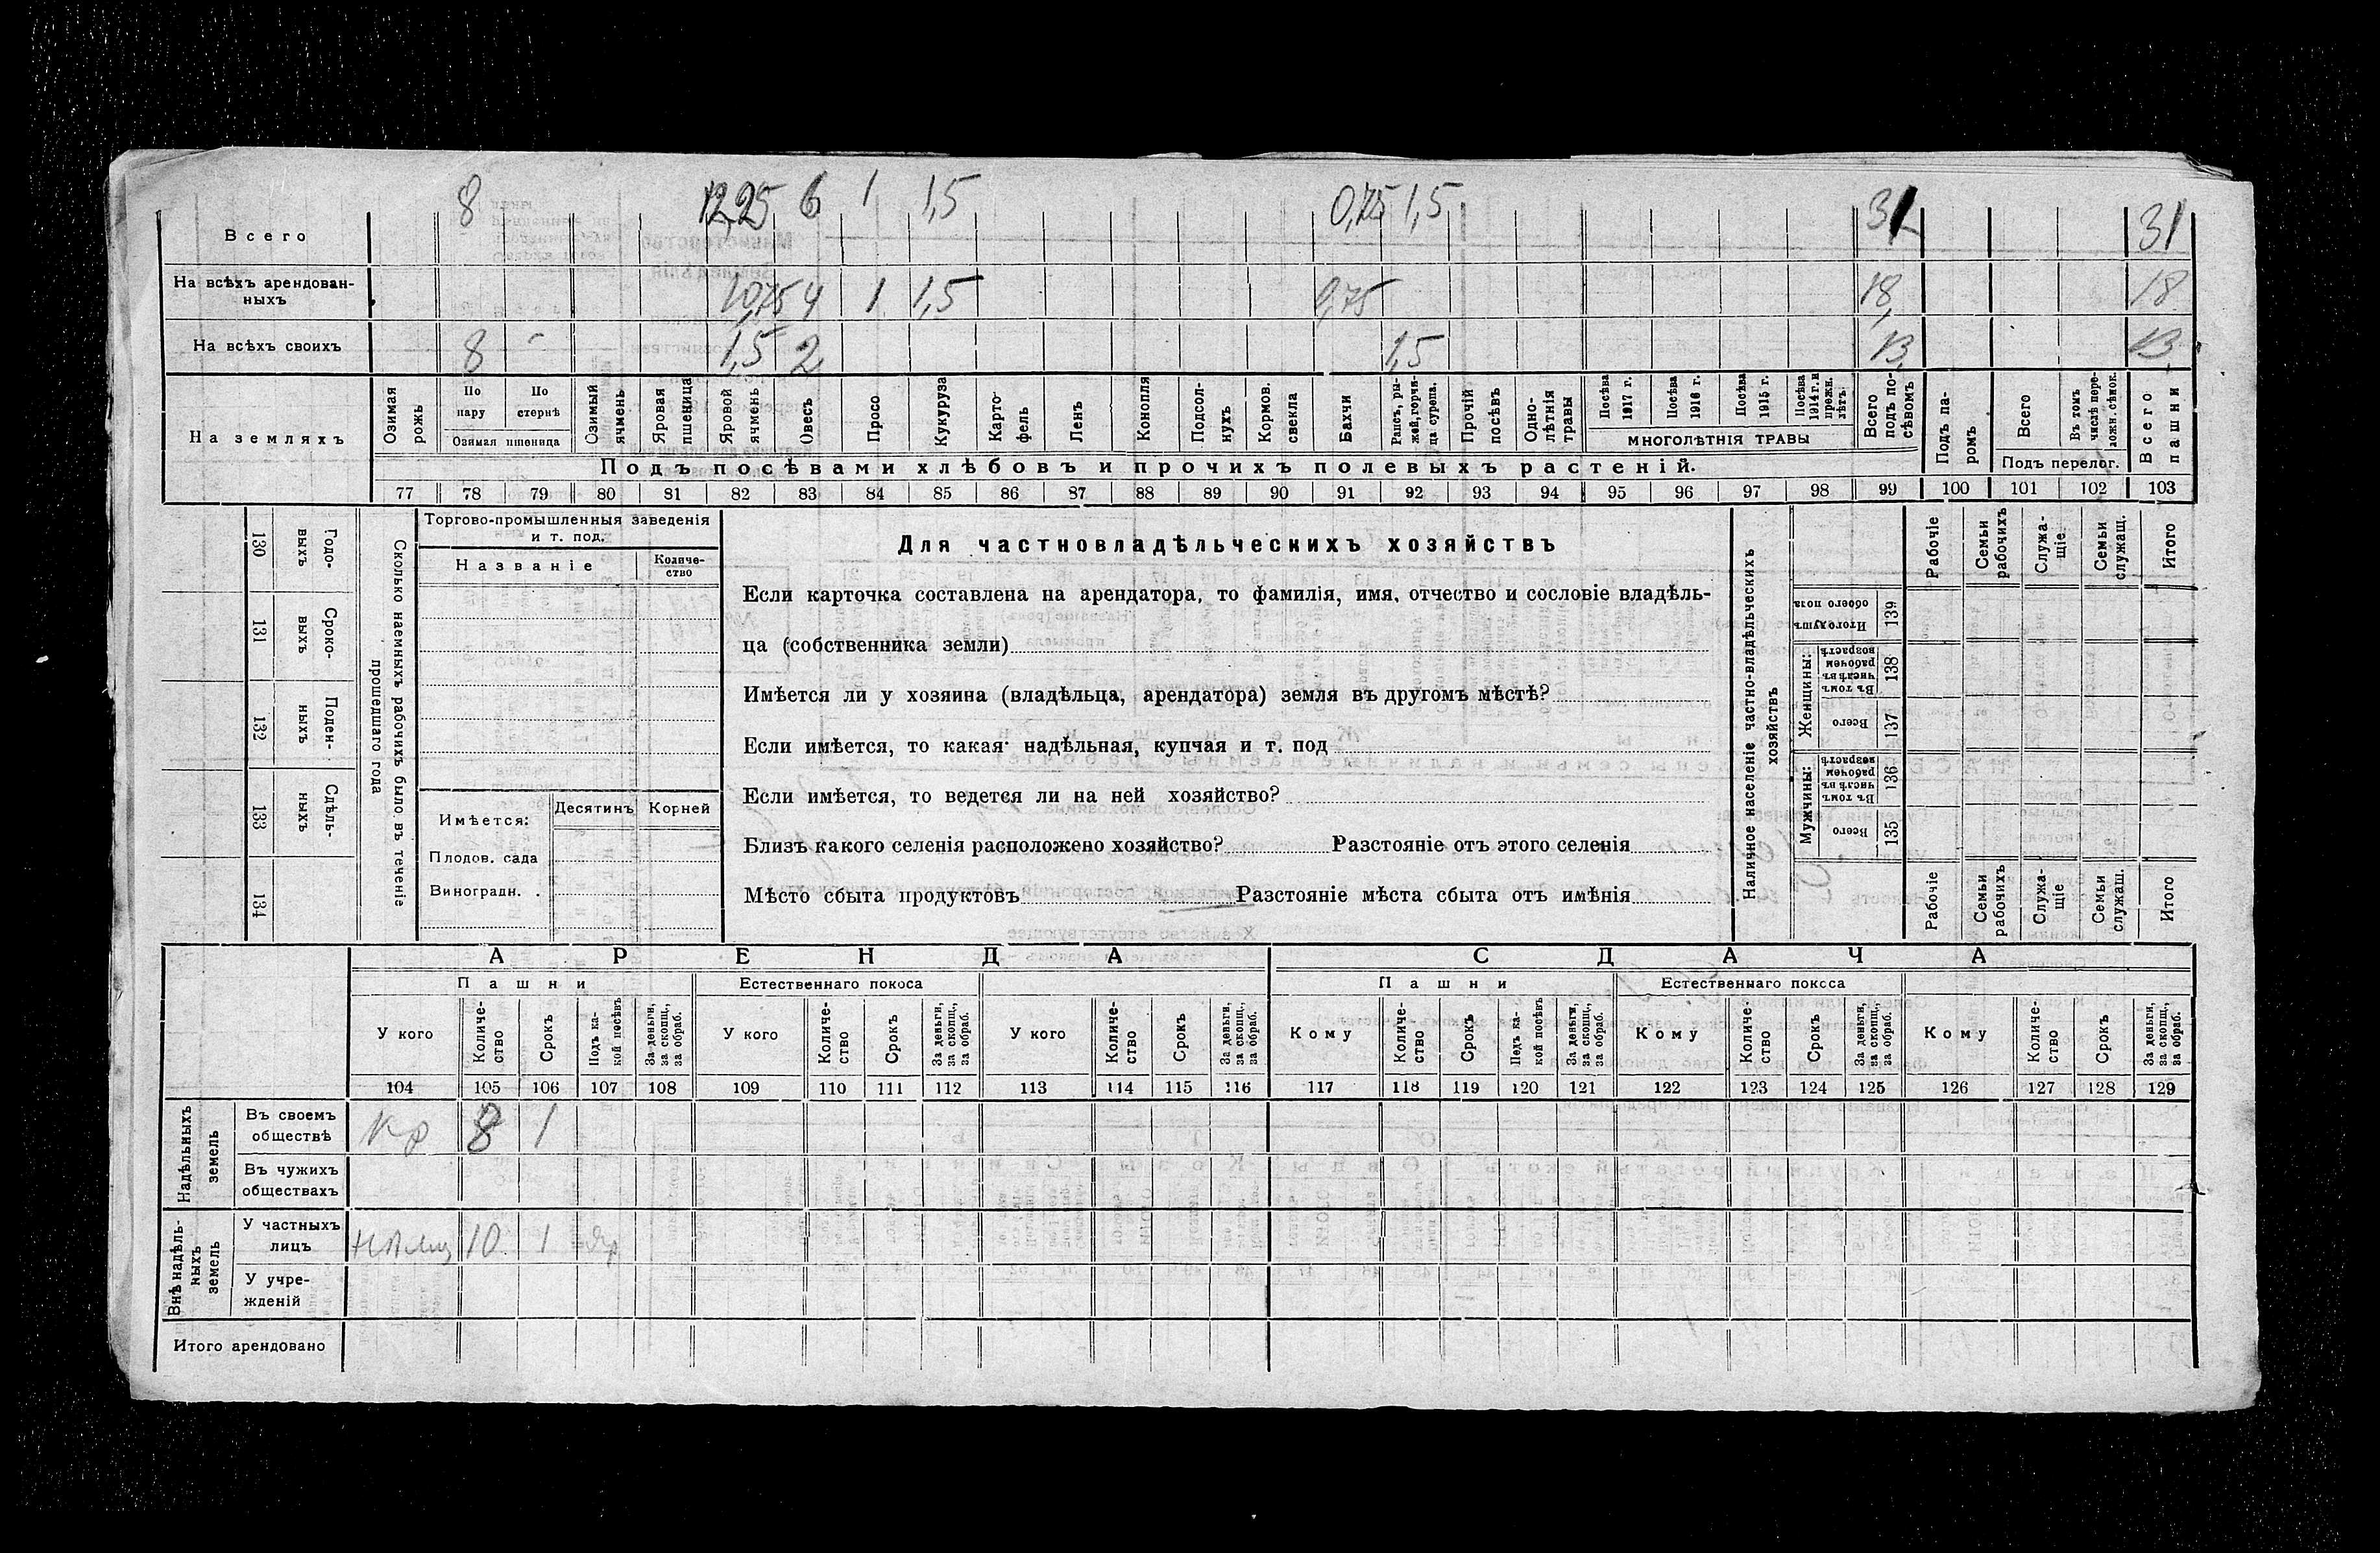 8 12,25 6 1 1,5 0,75 1,5 31 31
Всего
На всѣхъ арендован-
ныхъ
10,75 4 1 1,5 0,75 18 18
На всѣхъ своихъ
8 - 1,5 2 1,5 13 13
На земляхъ
Озимая рожь
По пару
По стернѣ
Озимая пшеница
Озимый ячмень
Яровая пшеница
Яровой ячмень
Овесъ
Просо
Кукуруза
Карто-
фель
Ленъ
Конопля
Подсол-
нухъ
Кормов.
свекла
Бахчи
Рапсъ, ры-
жей, горчи-
ца сурепа.
Прочій посѣвъ
Одно-
лѣтнія травы
Посѣва 1917 г.
Посѣва 1916 г.
Посѣва 1915 г.
Посѣва 1914 г. и прежн. лѣтъ.
МНОГОЛѢТНІЯ ТРАВЫ
Всего подъ по-
сѣвомъ
Подъ па-
ромъ
Всего
Въ томъ числѣ пере-
ложн. сѣнок.
Подъ перелог.
Всего пашни
Подъ посѣвами хлѣбовъ и прочихъ полевыхъ растеній.
77 78 79 80 81 82 83 84 85 86 87 88 89 90 91 92 93 94 95 96 97 98 99 100 101 102 103
130 Годо-
выхъ
131 Сроко-
выхъ
132 Поден-
ныхъ
133 Сдѣль-
ныхъ
134
Сколько наемныхъ рабочихъ было въ теченіе
прошедшаго года
Торгово-промышленныя заведенія
и т. под.
Названіе
Количе-
ство
Имѣется:
Десятинъ Корней
Плодов. сада
Виноградн.
Для частновладѣльческихъ хозяйствъ
Если карточка составлена на арендатора, то фамилія, имя, отчество и сословіе владѣль-
ца (собственника земли)
Имѣется ли у хозяина (владѣльца, арендатора) земля въ другомъ мѣстѣ?
Если имѣется, то какая: надѣльная, купчая и т. под
Если имѣется, то ведется ли на ней хозяйство?
Близъ какого селенія расположено хозяйство? Разстояніе отъ этого селенія
Мѣсто сбыта продуктовъ Разстояніе мѣста сбыта отъ имѣнія
Наличное населеніе частно-владѣльческихъ
хозяйствъ
Рабочіе
Семьи рабочихъ
Служа-
щіе
Семьи служащ.
Итого
Итого душъ обоего пола 139
Женщины:
Въ томъ числѣ въ рабочемъ возрастѣ 138
Всего 137
Мужчины:
Въ томъ числѣ въ рабочемъ возрастѣ 136
Всего 135
Рабочіе
Семьи рабочихъ
Служа-
щіе
Семьи служащ.
Итого
АРЕНДА СДАЧА
Пашни Естественнаго покоса Пашни Естественнаго покоса
У кого
Количе-
ство
Срокъ
Подъ ка-
кой посѣвъ
За деньги, за скопщ., за обраб.
У кого
Количе-
ство
Срокъ
За деньги, за скопщ., за обраб.
У кого
Количе-
ство
Срокъ
За деньги, за скопщ., за обраб.
Кому
Количе-
ство
Срокъ
Подъ ка-
кой посѣвъ
За деньги, за скопщ., за обраб.
Кому
Количе-
ство
Срокъ
За деньги, за скопщ., за обраб.
Кому
Количе-
ство
Срокъ
За деньги, за скопщ., за обраб.
104 105 106 107 108 109 110 111 112 113 114 115 116 117 118 119 120 121 122 123 124 125 126 127 128 129
Надѣльныхъ
земель
Въ своемъ
обществѣ
Кр 8 1
Въ чужихъ
обществахъ
Внѣ надѣль-
ныхъ
земель
У частныхъ
лицъ
10 1
У учре-
жденій
Итого арендовано